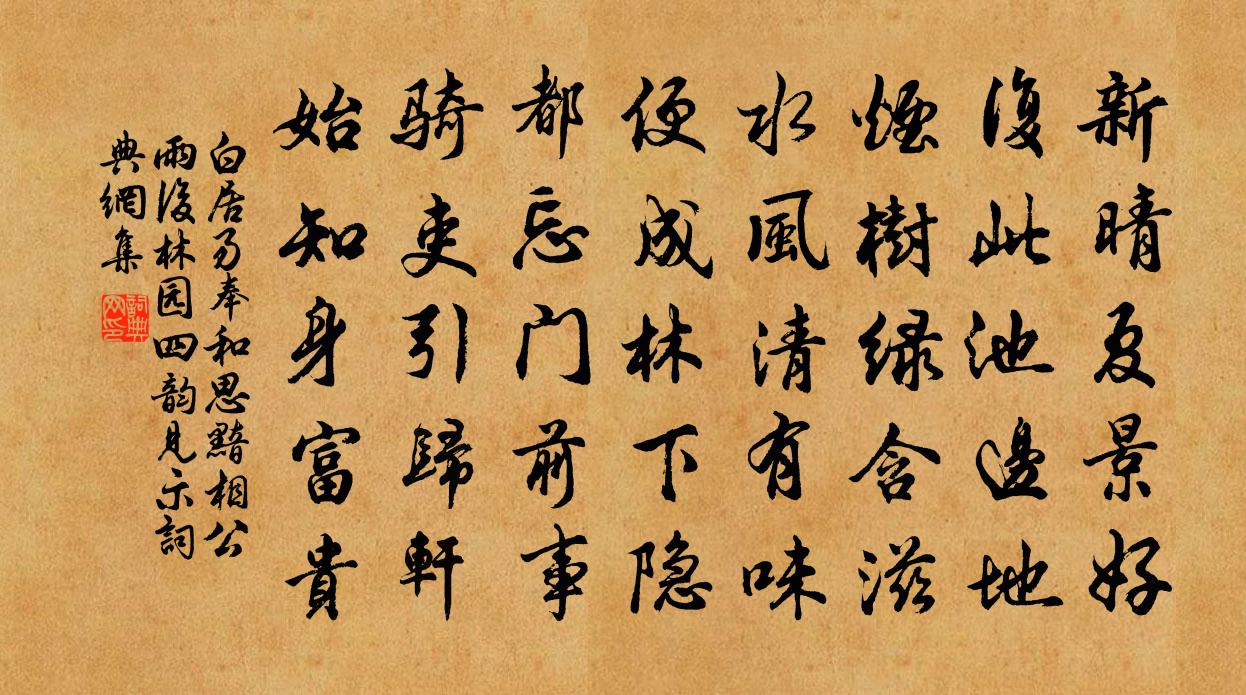 新晴夏景好
復此池邊地
煙樹綠含滋
水風清有味
便成林下隐
都忘门前事
騎吏引歸軒
始知身富貴
白居易奉和思黯相公
雨後林园四韵見示詞
典網集
詞典
网印